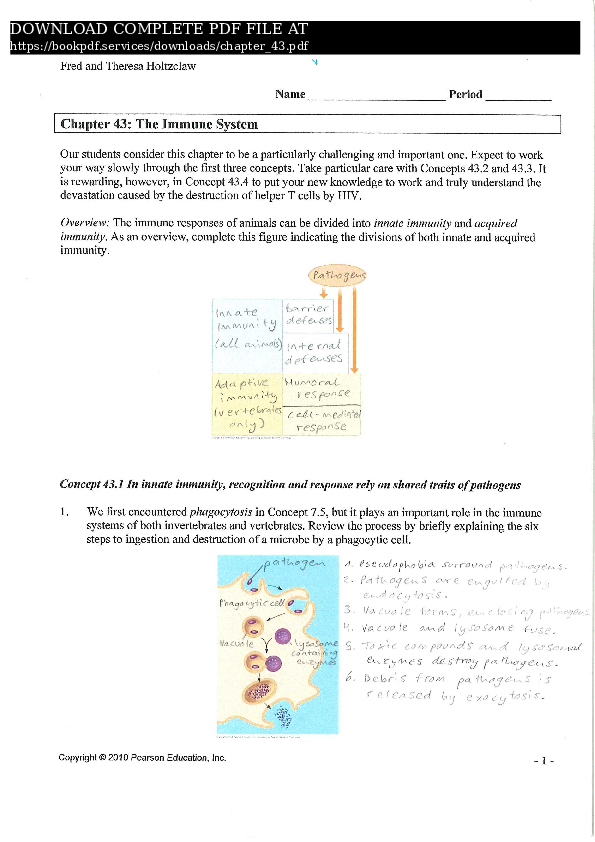 DOWNLOAD COMPLETE PDF FILE AT
https://bookpdf.services/downloads/chapter_43.pdf
Fred and Theresa Holtzclaw
Name Period
Chapter 43: The Immune System
Our students consider this chapter to be a particularly challenging and important one. Expect to work
your way slowly through the first three concepts. Take particular care with Concepts 43.2 and 43.3. It
is rewarding, however, in Concept 43.4 to put your new knowledge to work and truly understand the
devastation caused by the destruction of helper T cells by HIV.
Overview: The immune responses of animals can be divided into innate immunity and acquired
immunity. As an overview, complete this figure indicating the divisions of both innate and acquired
immunity.
Pathogens
Innate
immunity
(all animals)
barrier
defenses
Internal
defenses
Adaptive
immunity
(vertebrates
only)
Humoral
response
cell-mediated
response
Concept 43.1 In innate immunity, recognition and response rely on shared traits of pathogens
1. We first encountered phagocytosis in Concept 7.5, but it plays an important role in the immune
systems of both invertebrates and vertebrates. Review the process by briefly explaining the six
steps to ingestion and destruction of a microbe by a phagocytic cell.
pathogen
Phagocytic cell
Vacuole
lysosome
containing
enzymes
1. Pseudophobia surround pathogens.
2. Pathogens are engulfed by
endocytosis.
3. Vacuole forms, enclosing pathogens
4. Vacuole and lysosome fuse.
5. Toxic compounds and lysosomal
enzymes destroy pathogens.
6. Debris from pathogens is
released by exocytosis.
Copyright © 2010 Pearson Education, Inc.
- 1 -